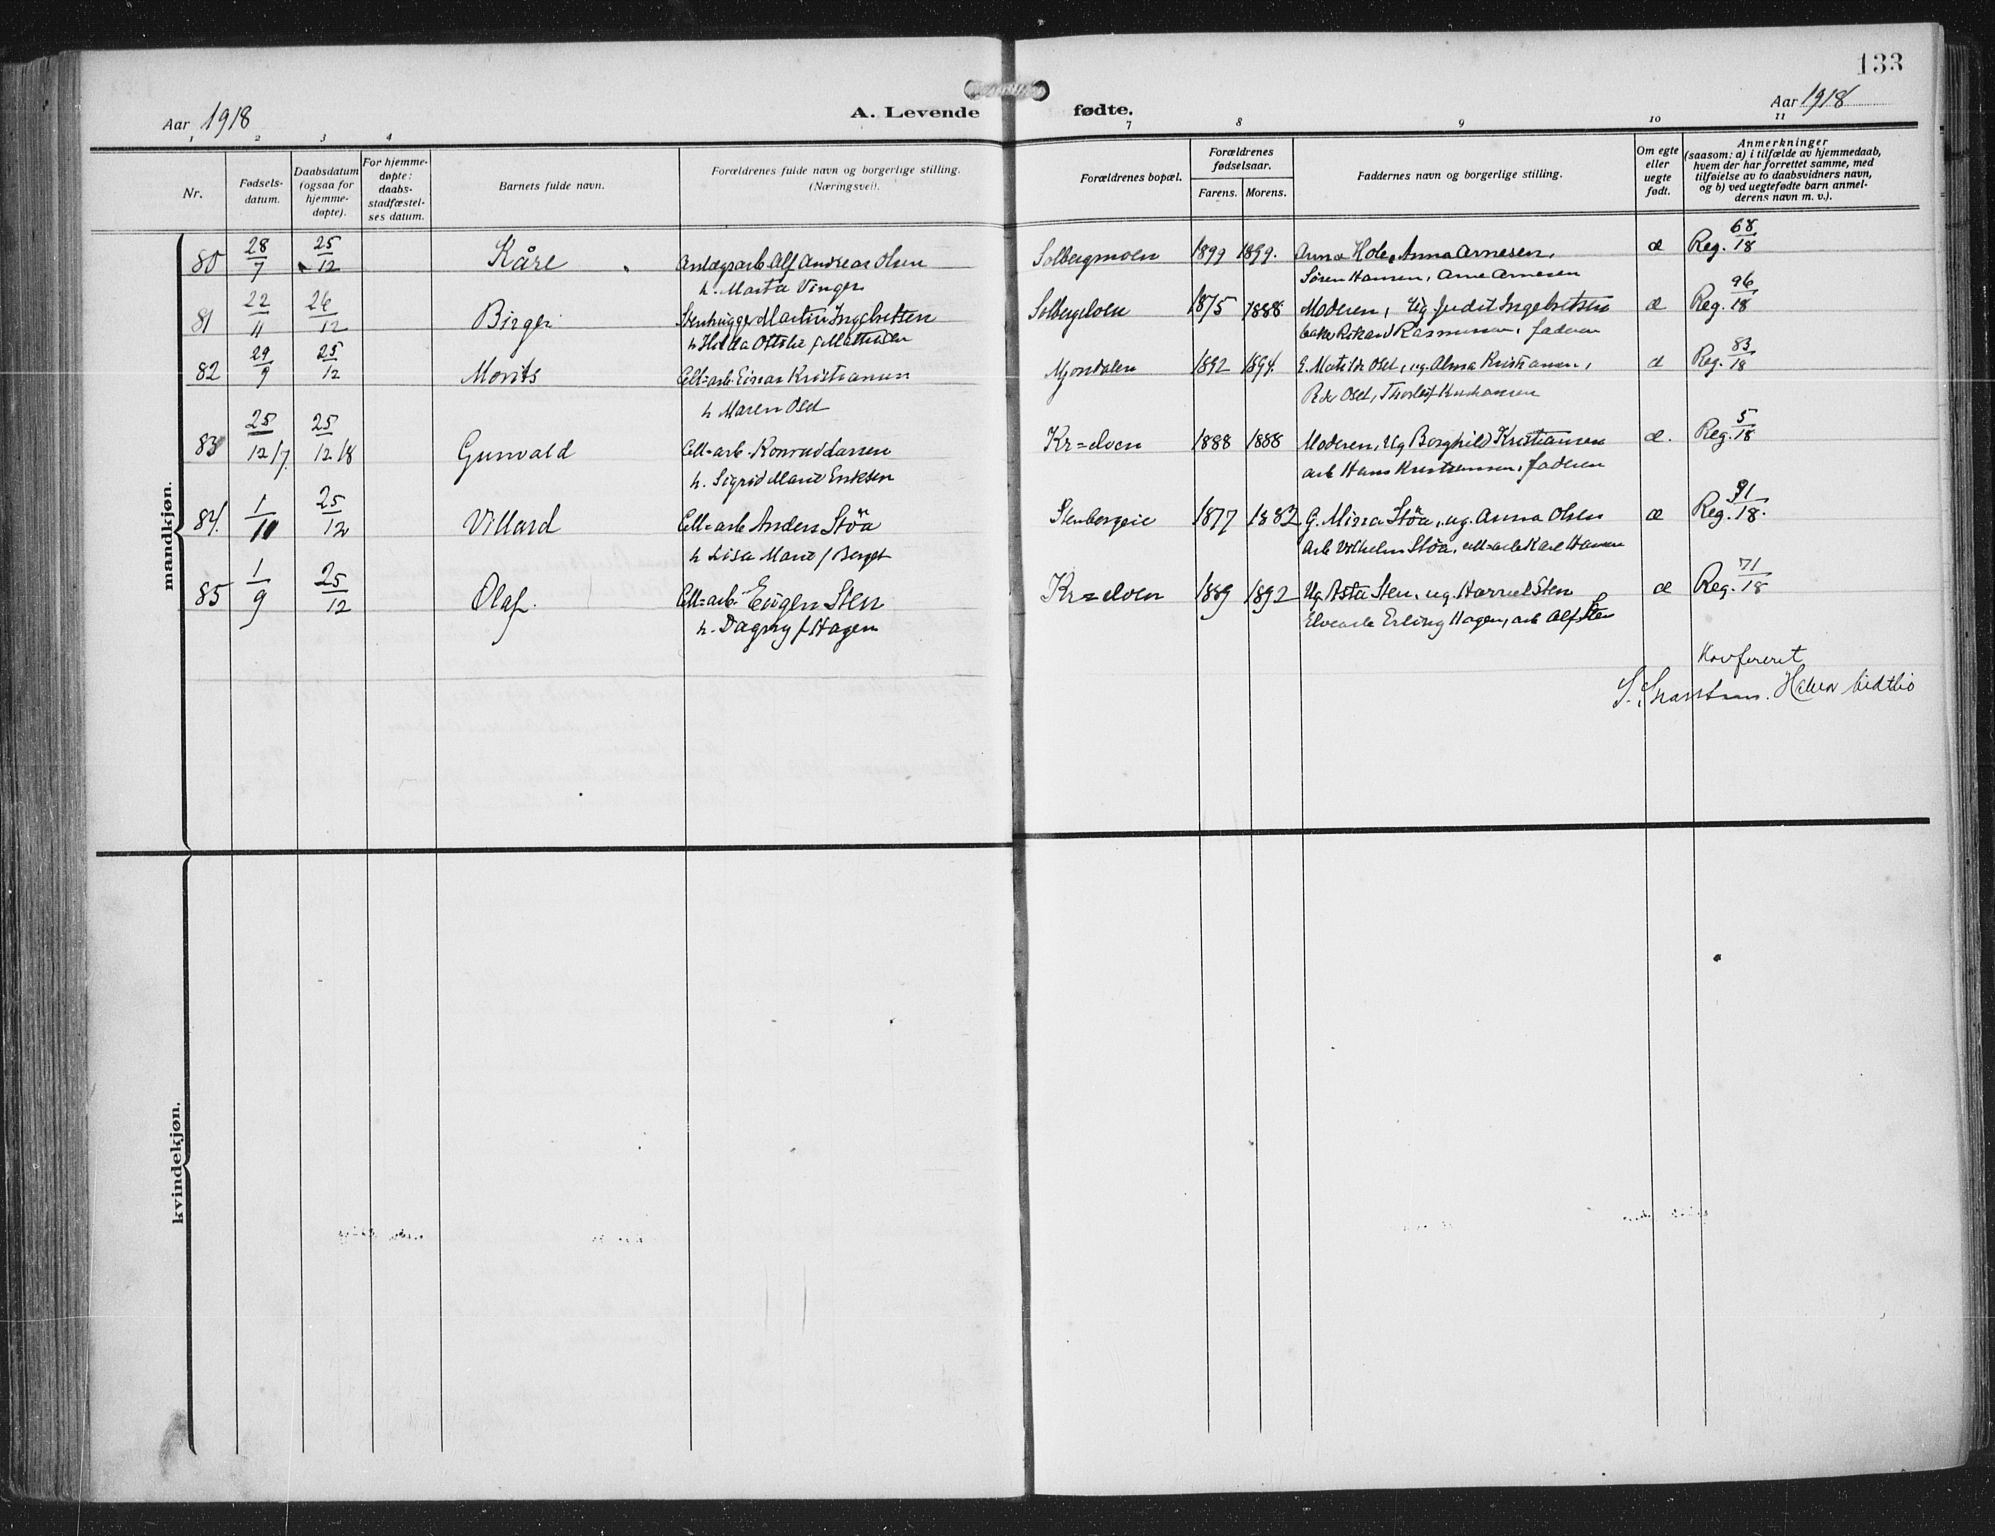 133
Aar 1918
A. Levende fødte.
Aar 1918
1 2 3 4 7 8 9 10 11
Nr.
Fødsels-
datum.
Daabsdatum
(ogsaa for
hjemme-
døpte).
For hjemme-
døpte:
daabs-
stadfæstel-
ses datum.
Barnets fulde navn.
Forældrenes fulde navn og borgerlige stilling.
(Næringsvei).
Forældrenes bopæl.
Forældrenes
fødselsaar.
Farens. Morens.
Faddernes navn og borgerlige stilling.
Om egte
eller
uegte
født.
Anmerkninger
(saasom: a) i tilfælde av hjemmedaab,
hvem der har forrettet samme, med
tilføielse av to daabsvidners navn,
og b) ved uegtefødte barn anmel-
derens navn m. v.).
mandkjøn.
80 28/7 25/12 Kåre Anlægsarb. Alf Andreas Olsen Solbergmoen 1899 1899. Anna Hole, Anna Arnesen, æ Reg. 68/18
h. Marta Vinger Søren Hansen, Arne Arnesen
81 22/11 26/12 Birger Stenhugger Martin Ingebretsen Solbergelven 1875 1888 Moderen, Ug. Judit Ingebretsen æ Reg. 96/18
Rasmussen, faderen
82 29/9 25/12 Morits Cell=arb. Einar Kristiansen Mjøndalen 1892 1894. G. Matilde Oset, ug. Alma Kristiansen, æ Reg. 83/18
h. Maren Oset Oset, Thorleif Kristiansen
83 25/12/17 25/12/18 Gunvald Cell=arb. Konrad Larsen Kr=elven 1888 1888 Moderen, Ug Borghild Kristiansen æ. Reg. 5/18
h. Sigrid Marie Eriksen arb Hans Kristiansen, faderen
84. 1/10 25/12 Villard Cell=arb Anders Støa Stenbergeie 1877 1882 G. Mina Støa, ug. Anna Olsen æ Reg. 91/18.
h Lisa Marie f Berget arb Vilhelm Støa, cell=arb Karl Hansen
85 1/9 25/12 Olaf. Cell=arb. Eugen Sten Kr=elven 1889 1892 Ug. Asta Sten, ug. Harriet Sten æ Reg. 71/18
h. Dagny f Hagen Elvearb Erling Hagen, arb Alf Sten
Konfereret
kvindekjøn.